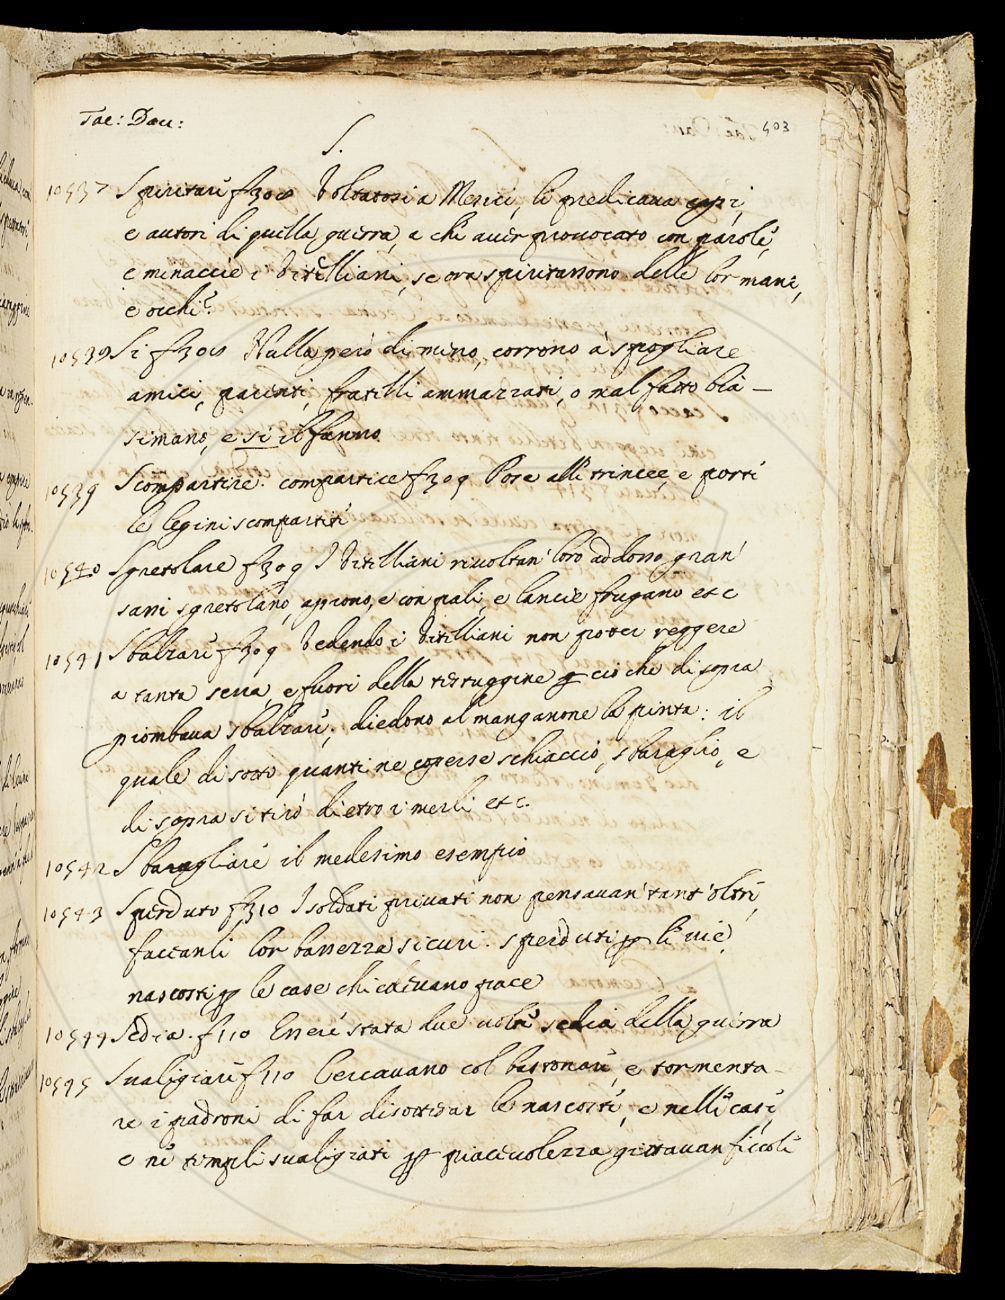 Tac: Dav:
403
S.
10537 Spiritare f 308 Voltatosi a Merici, li predicava capi,
e autori di quella guerra, e chi aver provocato con parole,
e minaccie i Vitelliani, se ora spiritassono delle lor mani,
e occhi?
10538 Si f 308 Nulla però di meno, corrono à spogliare
amici, parenti, fratelli ammazzati, o mal fatto bia-
simano, e si il fanno.
10539 Scompartire. compartire f 309 Pose alle trincee, e porti
le legini scompartiti
10540 Sgretolare f 309 I Vitelliani rivoltan' loro addosso gran'
sassi sgretolano, aprono, e con pali, e lancie frugano etc
10541 Sbalzare f 309 Vedendo i Vitelliani non poter reggere
a tanta serra, e fuori della testuggine p ciò che di sopra
piombava sbalzare, diedono al manganone la pinta: il
quale di sotto quanti ne coperse schiacciò, sbaragliò, e
di sopra si tirò dietro i merli etc.
10542 Sbaragliare il medesimo esempio
10543 Sperduto f 310 I soldati privati non pensavan' tant'oltre,
faccanli lor bassezza sicuri. sperduti p le vie,
nascosti p le case chiedevano pace
10544 Sedia. f 110 Enere stata due volte sedia della guerra
10545 Svaligiare f 110 Cercavano col bastonare, e tormenta-
re i padroni di far disotterar le nascosti, e nelle case,
e ne templi svaligiati p piacevolezza gittavan ficcole